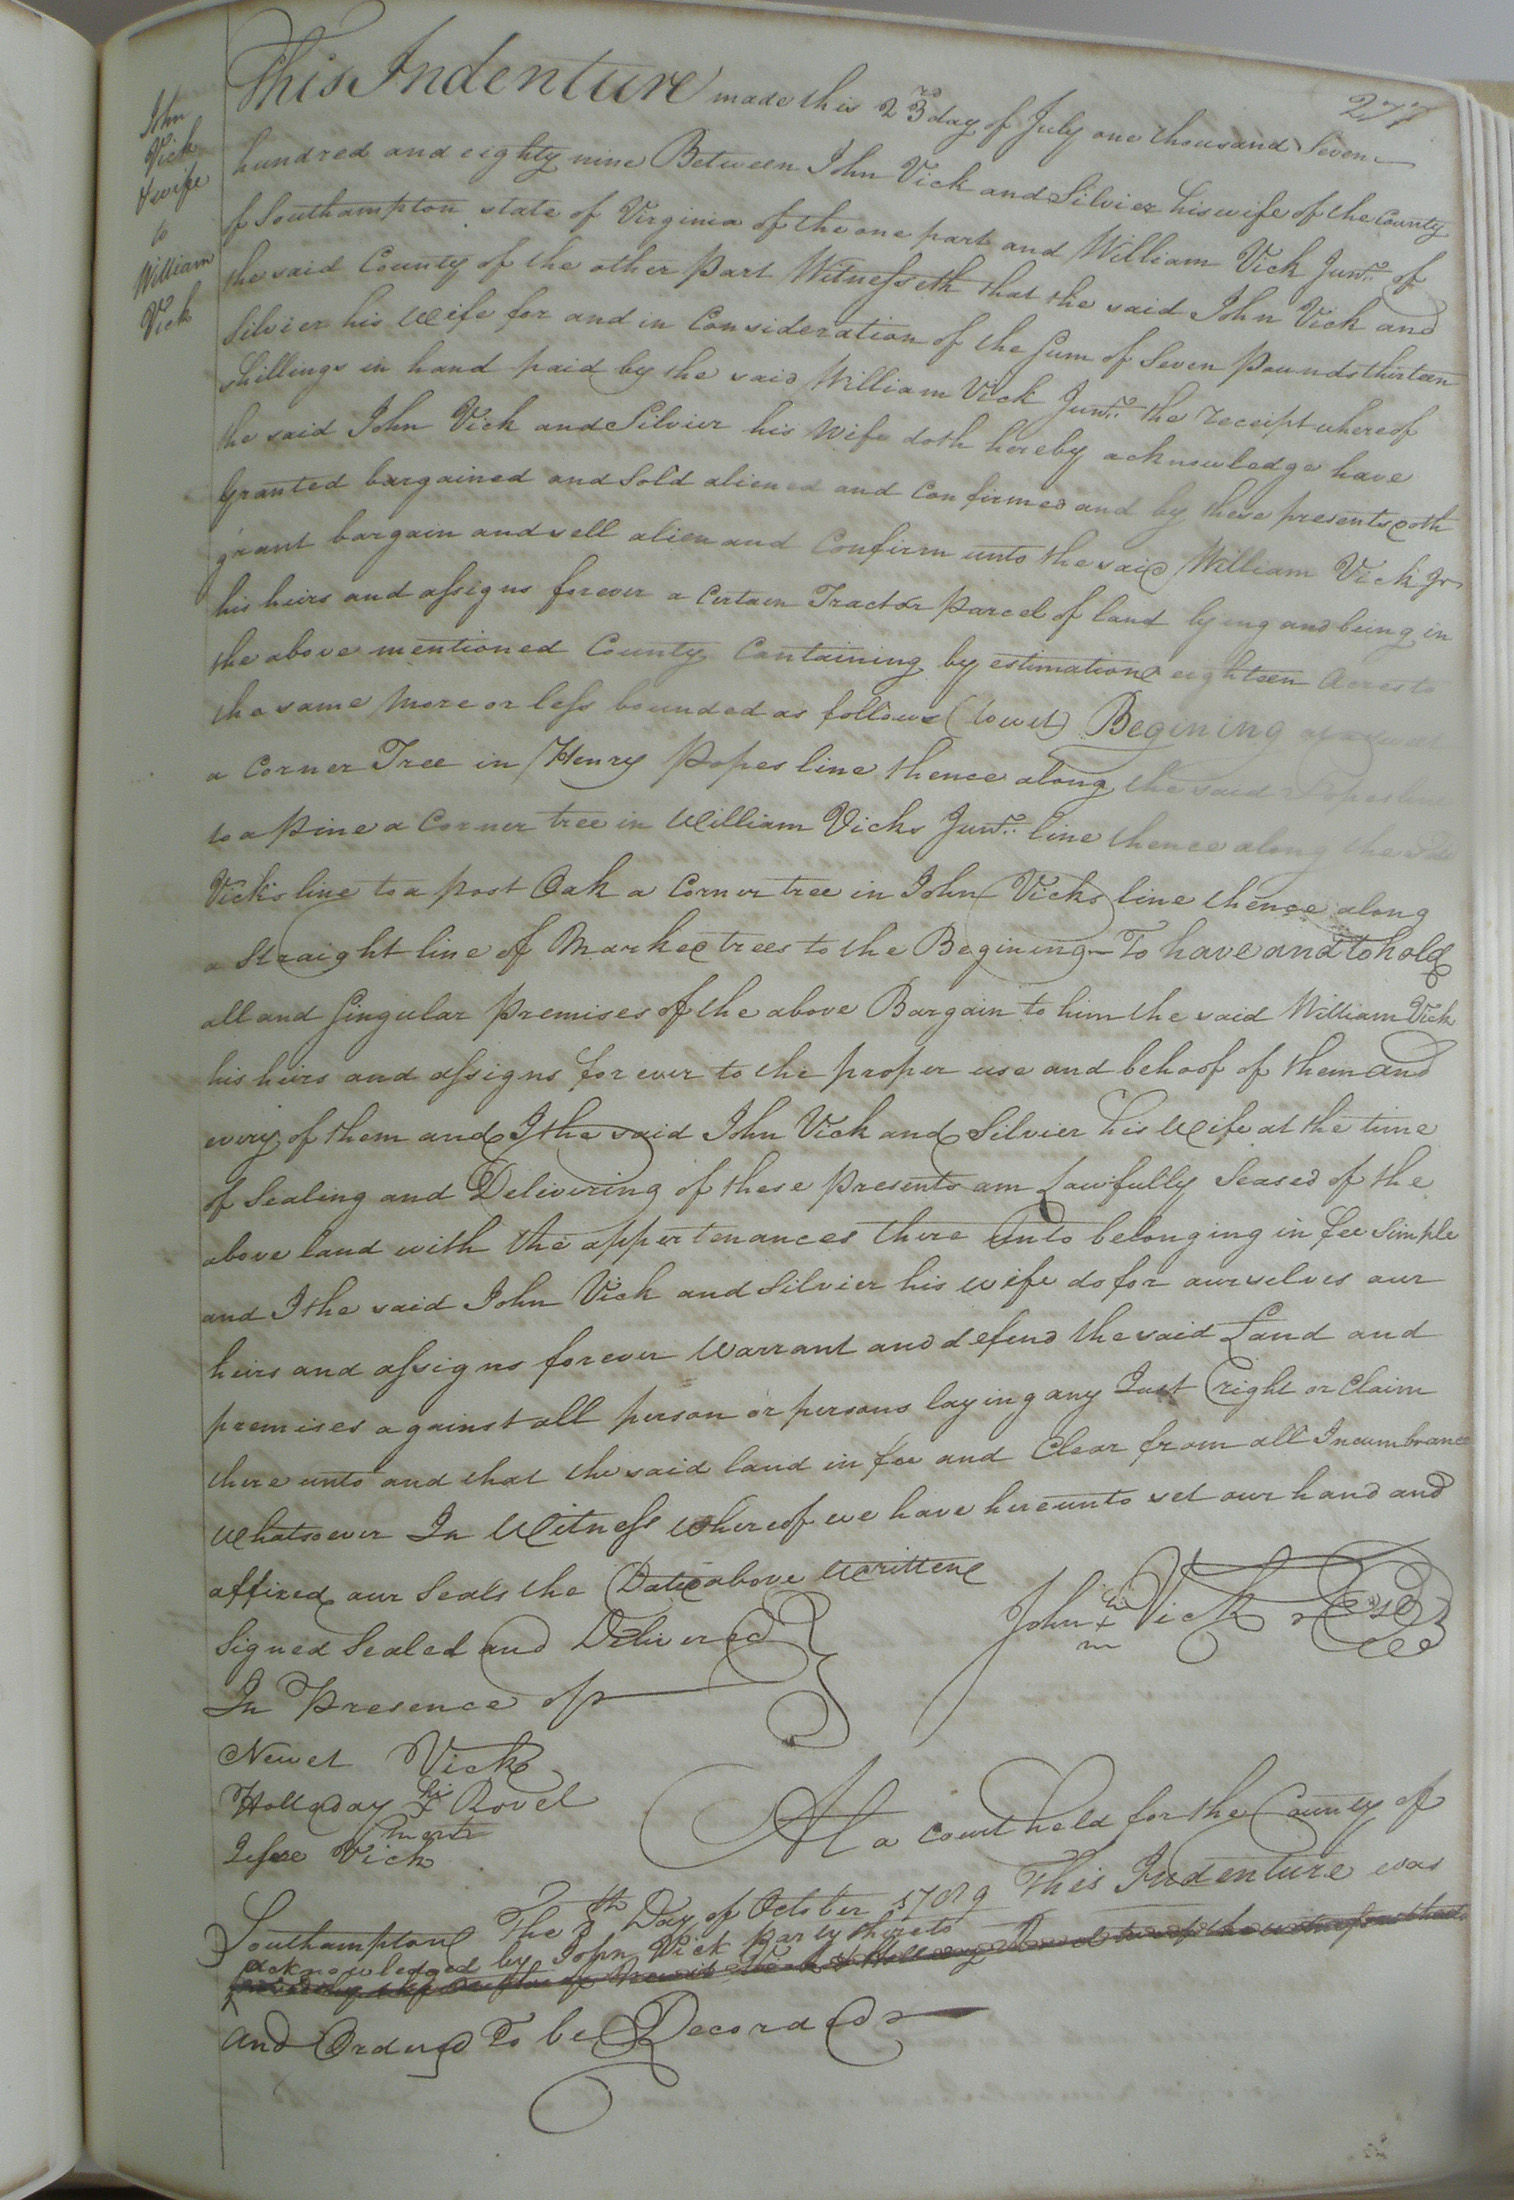 277
John
Vick
& wife
to
William
Vick
This Indenture made this 23rd day of July one thousand Seven
hundred and eighty nine Between John Vick and Silvier his wife of the County
of Southampton state of Virginia of the one part and William Vick Junr. of
the said County of the other Part Witnesseth that the said John Vick and
Silvier his Wife for and in Consideration of the Sum of Seven Pounds thirteen
Shillings in hand paid by the said William Vick Junr. the receipt whereof
the said John Vick and Silvier his Wife doth hereby acknowledge have
Granted bargained and Sold aliened and Confirmed and by these presents doth
grant bargain and sell alien and Confirm unto the said William Vick Jr
his heirs and assigns forever a Certain Tract or Parcel of land lying and being in
the above mentioned County Containing by estimation eighteen Acres to
the same more or less bounded as follows (to wit) Begining
a Corner Tree in Henry Popes line thence along the said Popes line
to a Pine a Corner tree in William Vicks Junr. line thence along the sd
Vicks line to a post Oak a Corner tree in John Vicks line thence along
a Straight line of Marked trees to the Begining To have and to hold
all and Singular Premises of the above Bargain to him the said William Vick
his heirs and assigns for ever to the proper use and behoof of them and
every of them and I the said John Vick and Silvier his Wife at the time
of Sealing and Delivering of these Presents am Lawfully Seased of the
above land with the appertenances there Unto belonging in fee Simple
and I the said John Vick and Silvier his wife do for ourselves our
heirs and assigns forever Warrant and defend the said Land and
premises against all person or persons laying any Just right or Claim
there unto and that the said land in fee and Clear from all Incumbrance
Whatsoever In Witness Whereof we have hereunto set our hand and
affixed our Seals the Date above Written
Signed Sealed and Delivered
In Presence of
John his + m Vick Seal
Newet Vick
Holladay his + mark Rovel
Jesse Vick
At a Court held for the County of
Southampton The 8th Day of October 1789 This Indenture was
acknowledged by John Vick party thereto
and Ordered To be Recorded